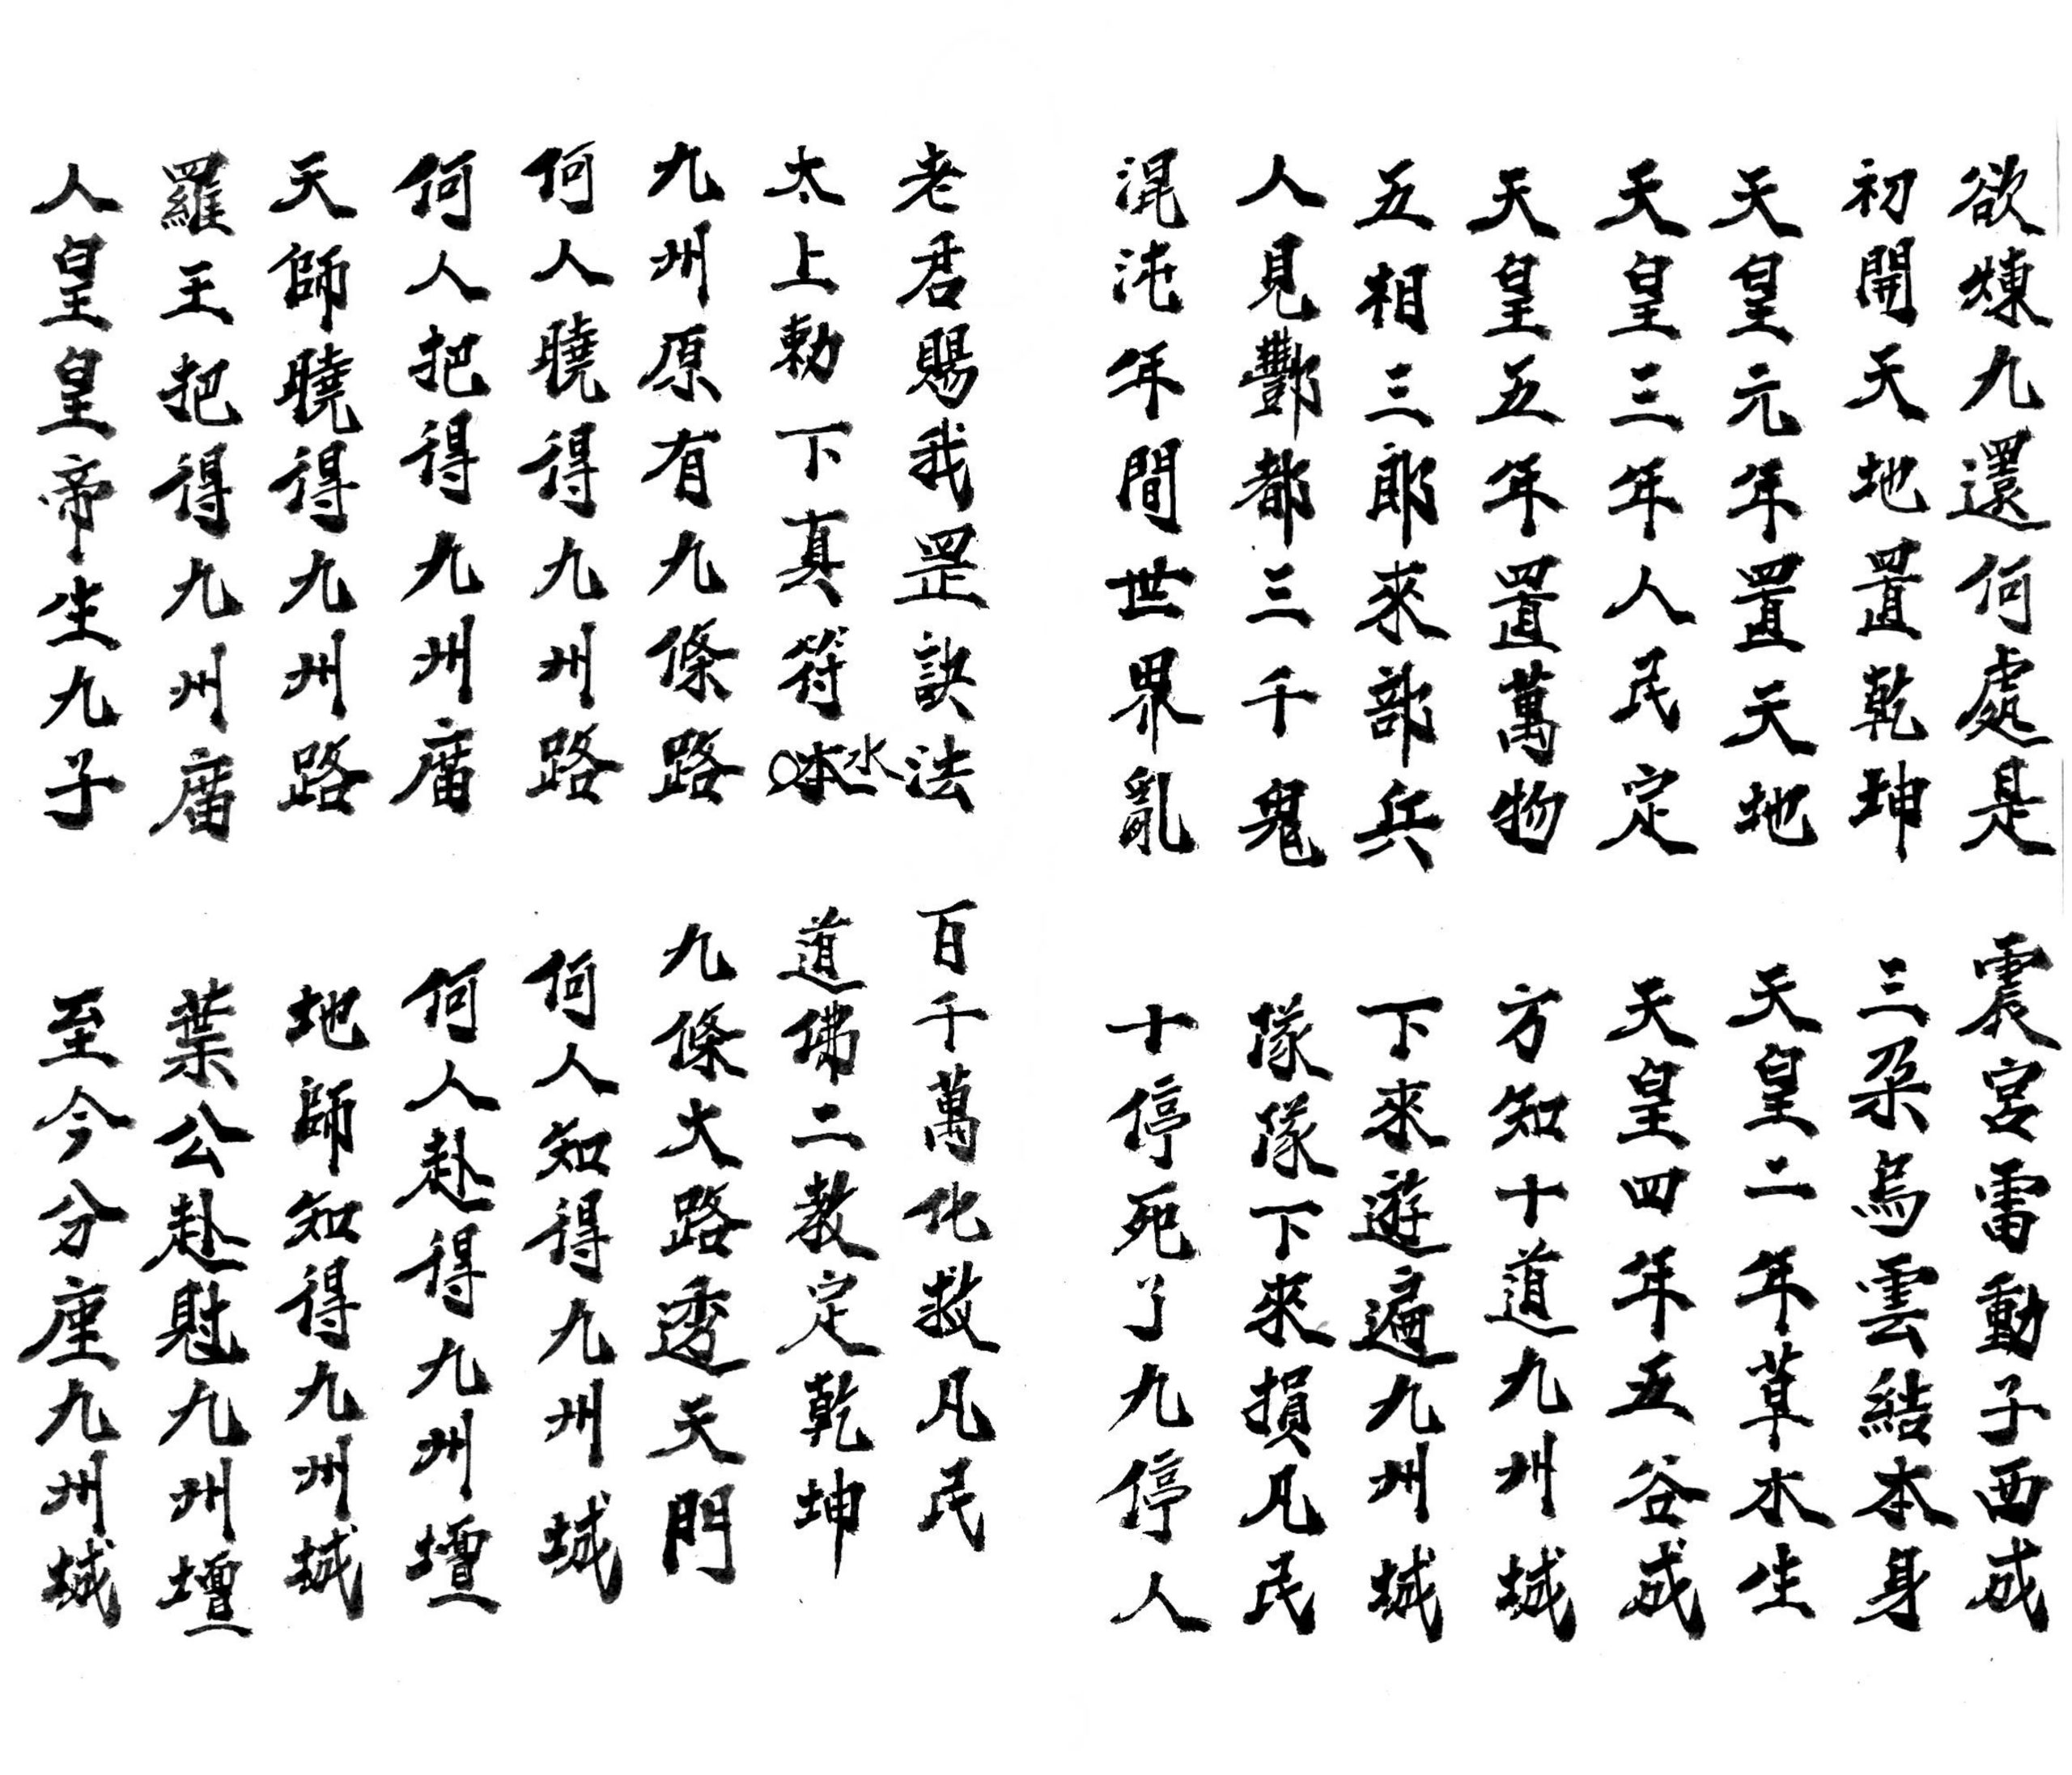 欲煉九還何處是　震宮雷動子西成
初開天地置乾坤　三朵烏雲結本身
天皇元年置天地　天皇二年草木生
天皇三年人民定　天皇四年五谷成
天皇五年置萬物　方知十道九州城
五相三郎來部兵　下來遊遍九州城
人見酆都三千鬼　隊隊下來損凡民
混沌年間世界亂　十停死了九停人
老君賜我罡訣法　百千萬化救凡民
太上勅下真符本水　道佛二教定乾坤
九州原有九條路　九條大路透天門
何人曉得九州路　何人知得九州城
何人把得九州庿　何人赴得九州壇
天師曉得九州路　地師知得九州城
羅王把得九州庿　葉公赴九州壇
人皇皇帝生九子　至今分座九州城